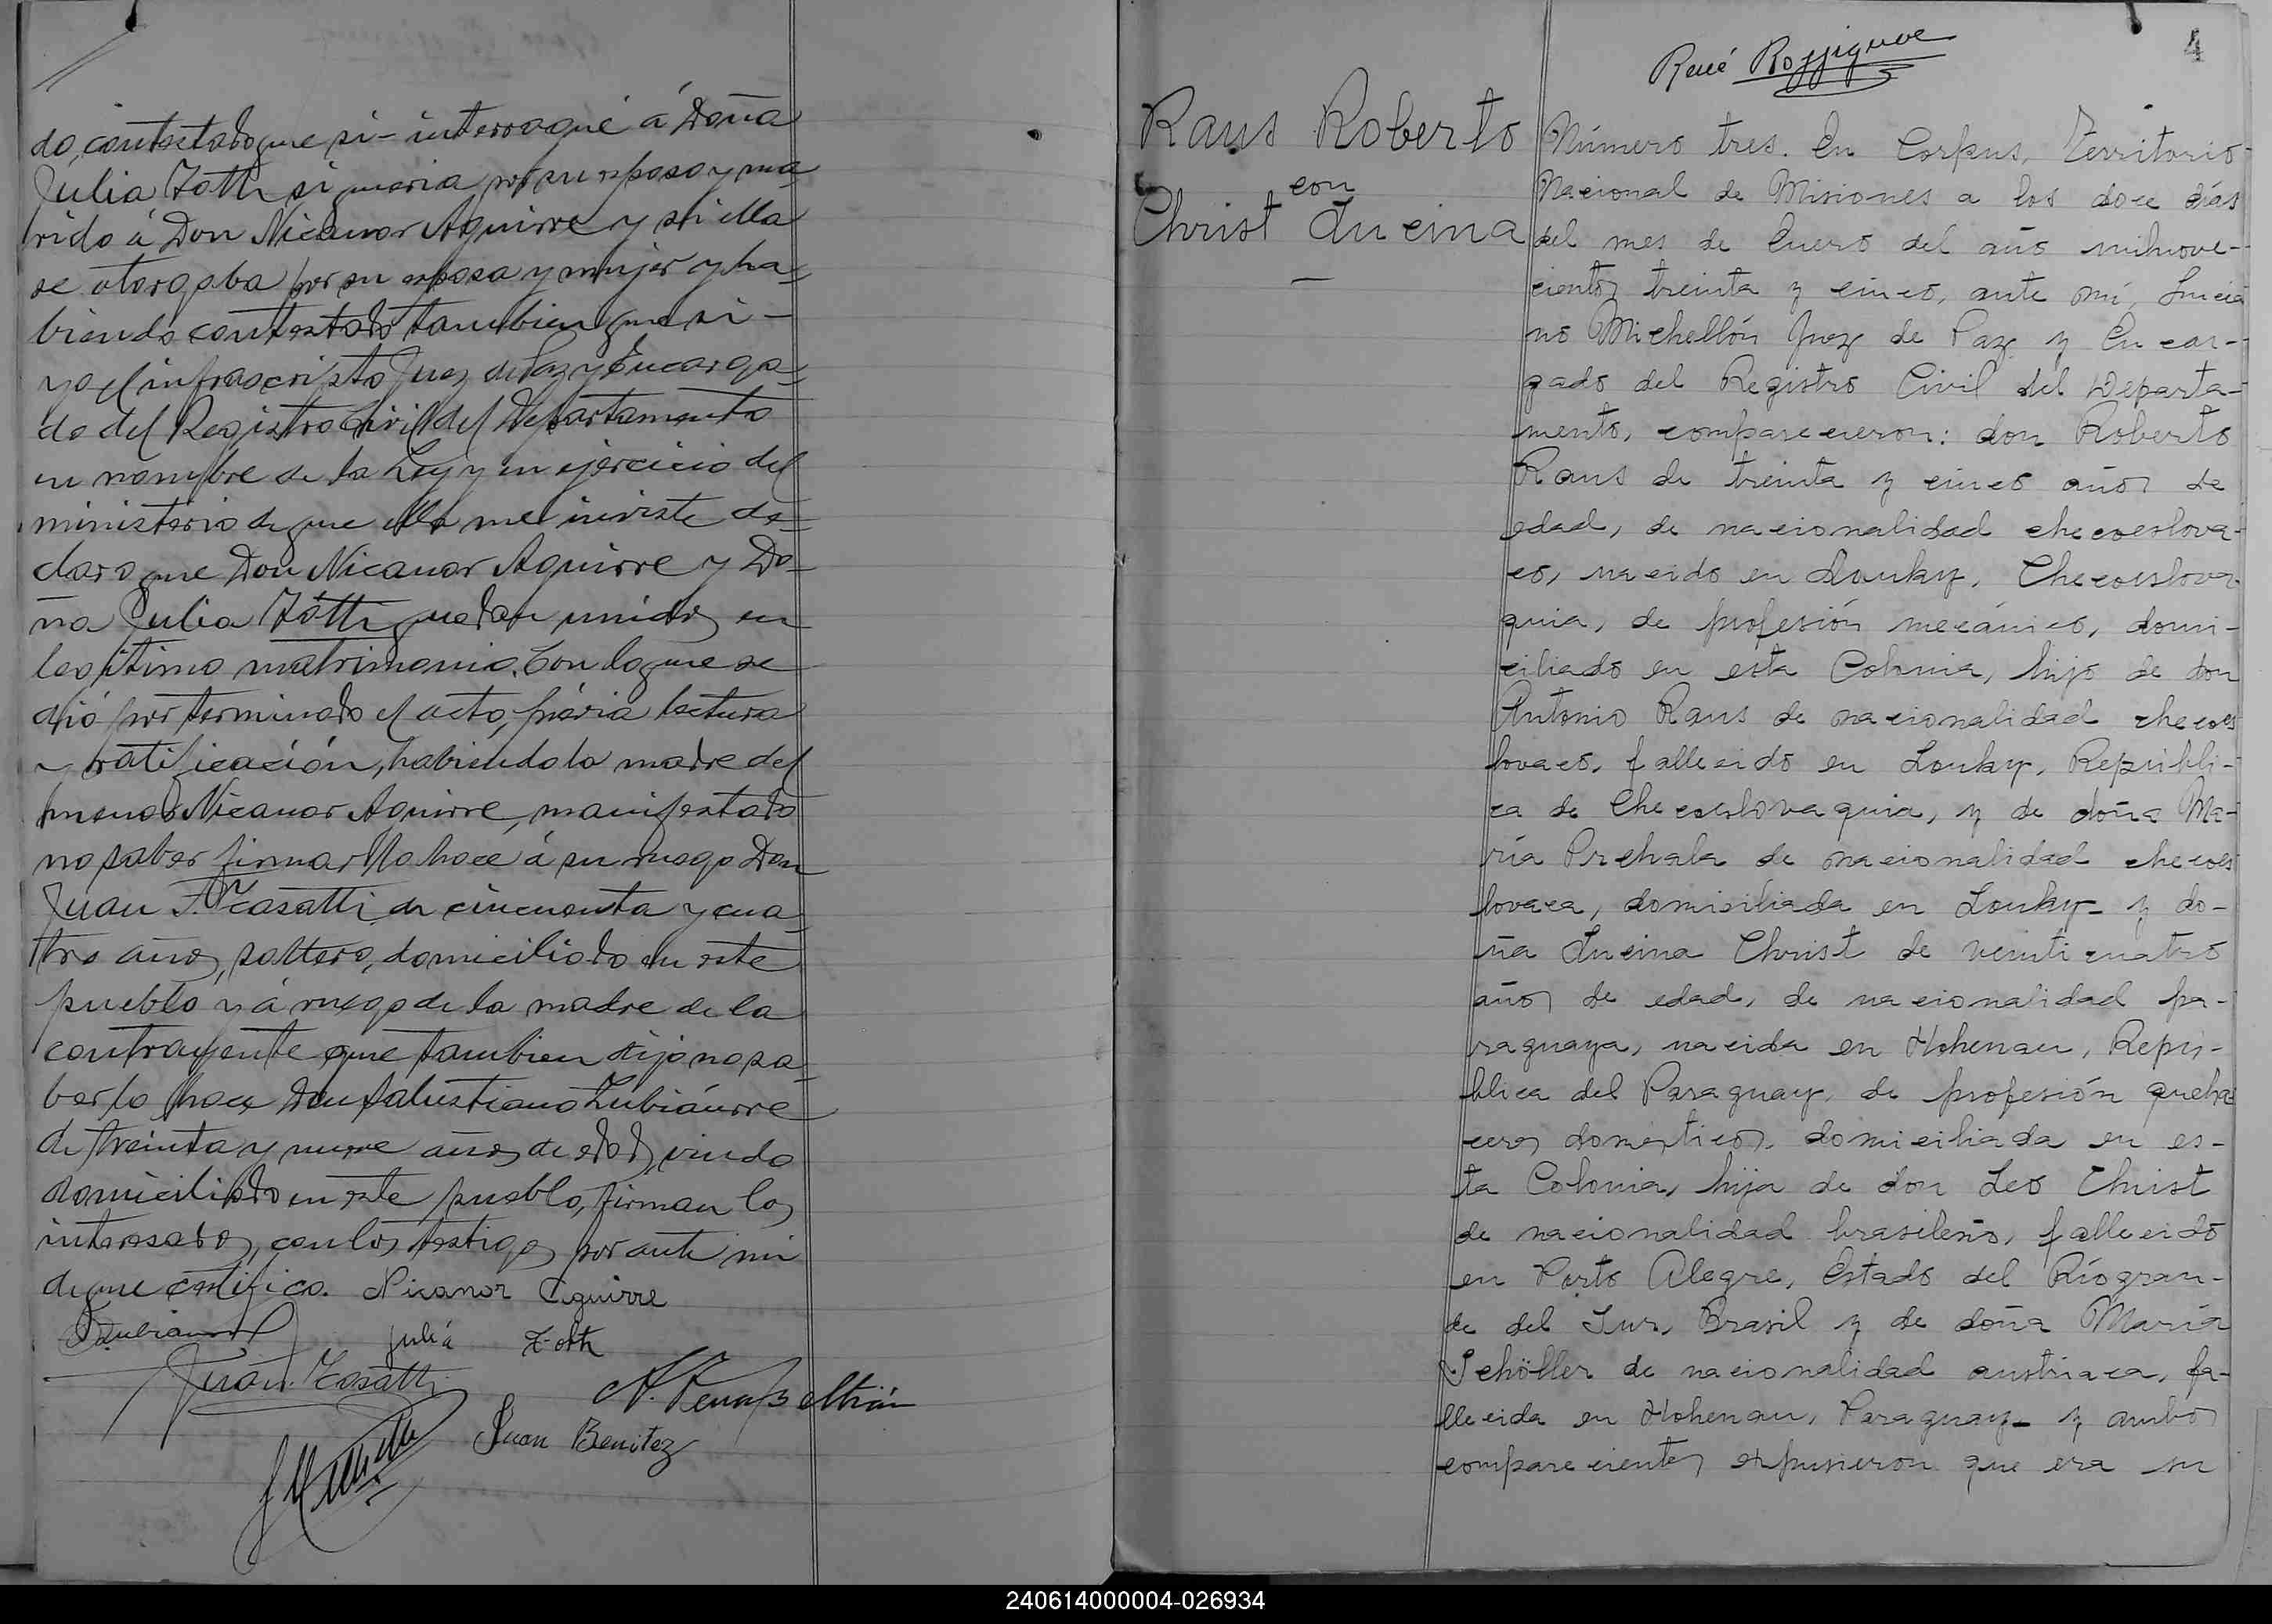 do, contestado que si - interrogué á Doña
Julia Toth si queria por su esposo y ma-
rido á Don Nicanor Aguirre y si ella
se otorgaba por su esposa y mujer y ha-
biendo contestado tambien que si -
yo el infrascripto Juez de Paz y Encarga-
do del Registro Civil del Departamento
en nombre de la Ley y en ejercicio del
ministerio de que ella me inviste de-
claro que Don Nicanor Aguirre y Do-
ña Julia Tóth quedan unidos en
legítimo matrimonio. Con lo que se
dió por terminado el acto, prévia lectura
y ratificación, habiendo la madre del
menor Nicanor Aguirre, manifestado
no saber firmar lo hace á su ruego Don
Juan F. Tosatti de cincuenta y cua-
tro años, soltero, domiciliado en este
pueblo y á ruego de la madre de la
contrayente que tambien dijo no sa-
ber lo hace Don Salustiano Zubiáurre
de treinta y nueve años de edad, viudo
domiciliado en este pueblo, firman los
interesados, con los testigos por ante mi
de que certifico. Nicanor Aguirre
Julia Toth
Juan Tosatti
Juan Benitez
4
René
Raus Roberto
con
Christ Lucina
Número tres. En Corpus, Territorio
Nacional de Misiones a los doce días
del mes de Enero del año milnove-
cientos treinta y cinco, ante mí, Lucia
no Michellón Juez de Paz y Encar-
gado del Registro Civil del Departa-
mento, comparecieron: don Roberto
Raus de treinta y cinco años de
edad, de nacionalidad checoeslova-
co, nacido en Louky, Checoeslova-
quia, de profesión mecánico, domi-
ciliado en esta Colonia, hijo de don
Antonio Raus de nacionalidad checoes
lovaco, fallecido en Louky, Repúbli-
ca de Checoeslovaquia, y de doña Ma-
ría Prchala de nacionalidad checoes
lovaca, domiciliada en Louky - y do-
ña Lucina Christ de veinticuatro
años de edad, de nacionalidad pa-
raguaya, nacida en Hohenau, Repú-
blica del Paraguay, de profesión queha
ceres domésticos, domiciliada en es-
ta Colonia, hija de don Leo Christ
de nacionalidad brasileño, fallecido
en Porto Alegre, Estado del Ríogran-
de del Sur, Brasil y de doña María
Schöller de nacionalidad austriaca, fa-
llecida en Hohenau, Paraguay - y ambos
comparecientes expusieron que era su
240614000004-026934